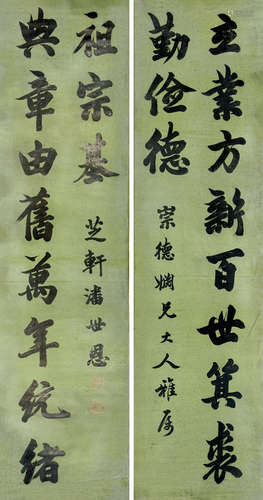 立業方新百世箕裘
勤儉德
崇德姻兄大人雅屬
典章由舊萬年統緒
祖宗基
芝軒潘世恩